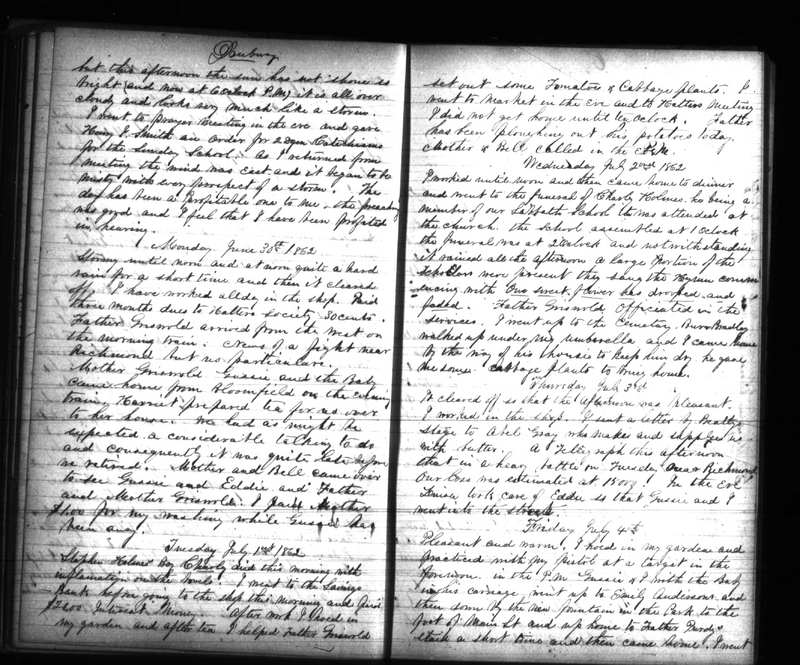 Danbury
but this afternoon the sun has not shone so
bright and now at 6 Oclock P.M. it is all over
cloudy and looks very much like a storm.
I went to prayer meeting in the eve and gave
Henry J. Smith an order for 2 dozn Catechisms
for the Sunday School. As I returned from
meeting the wind was East and it began to be
misty with every prospect of a storm. The
day has been a profitable one to me. the preaching
was good and I feel that I have been profited
in hearing.
Monday June 30th 1862
Stormy until noon and at noon quite a hard
rain for a short time and then it cleared
off. I have worked all day in the shop. Paid
three months dues to Hatters Society 30 cents.
Father Griswold arrived from the West on
the morning train. News of a fight near
Richmond but no particulars.
Mother Griswold Gussie and the Baby
came home from Bloomfield on the evening
train. Harriet prepared tea for us over
to her house. We had as might be
expected a considerable talking to do
and consequently it was quite late before
we retired. Mother and Bell came over
to see Gussie and Eddie and Father
and Mother Griswold. I paid Mother
$1.00 for my washing while Gussie has
been away.
Tuesday July 1st 1862
Stephen Holmes Boy Charly died this morning with
inflamation on the bowels. I went to the Savings
Bank before going to the shop this morning and
$24.00 Interest Money. After work I hoed in
my garden and after tea I helped Father Griswold
set out some Tomatoes & Cabbage plants. I
went to Market in the eve and to Hatters Meeting
I did not get home until ten Oclock. Father
has been ploughing out his potatoes today.
Mother & Bell called in the P.M.
Wednesday July 2nd 1862
I worked until noon and then came home to dinner
and went to the funeral of Charly Holmes. he being a
member of our Sabbath School it was attended at
the church. the School assembled at 1 Oclock
the funeral was at 2 Oclock and notwithstanding
it rained all the afternoon a large portion of the
Schollers were present they sang the Hymn comm
encing with One sweet flower has drooped and
faded. Father Griswold Officiated in the
services. I went up to the Cemetery. Burr Bradley
walked up under my umbrella and I came home
by the way of his house to keep him dry. he gave
me some cabbage plants to bring home.
Thursday July 3rd
It cleared off so that the afternoon was pleasant.
I worked in the shop. I sent a letter by Beattys
stage to Abel Gray who makes and supplyes us
with butter. A Tellegraph this afternoon
that in a heavy battle on Tuesday near Richmond
Our loss was estimated at 15000! In the Eve
Louisa took care of Eddie so that Gussie and I
went into the street.
Friday July 4th
Pleasant and warm. I hoed in my garden and
practiced with my pistol at a target in the
forenoon. in the P.M. Gussie & I with the Baby
in his carriage went up to Emily Andersons and
then some by the new fountain in the Park to the
foot of Main St and up home to Father Purdys
staid a short time and then came home. I went